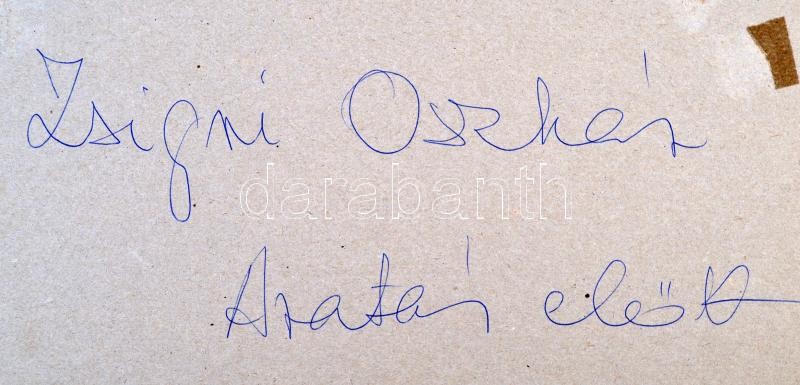 Zsigni Oszkár
darabanth
Aratás előtt